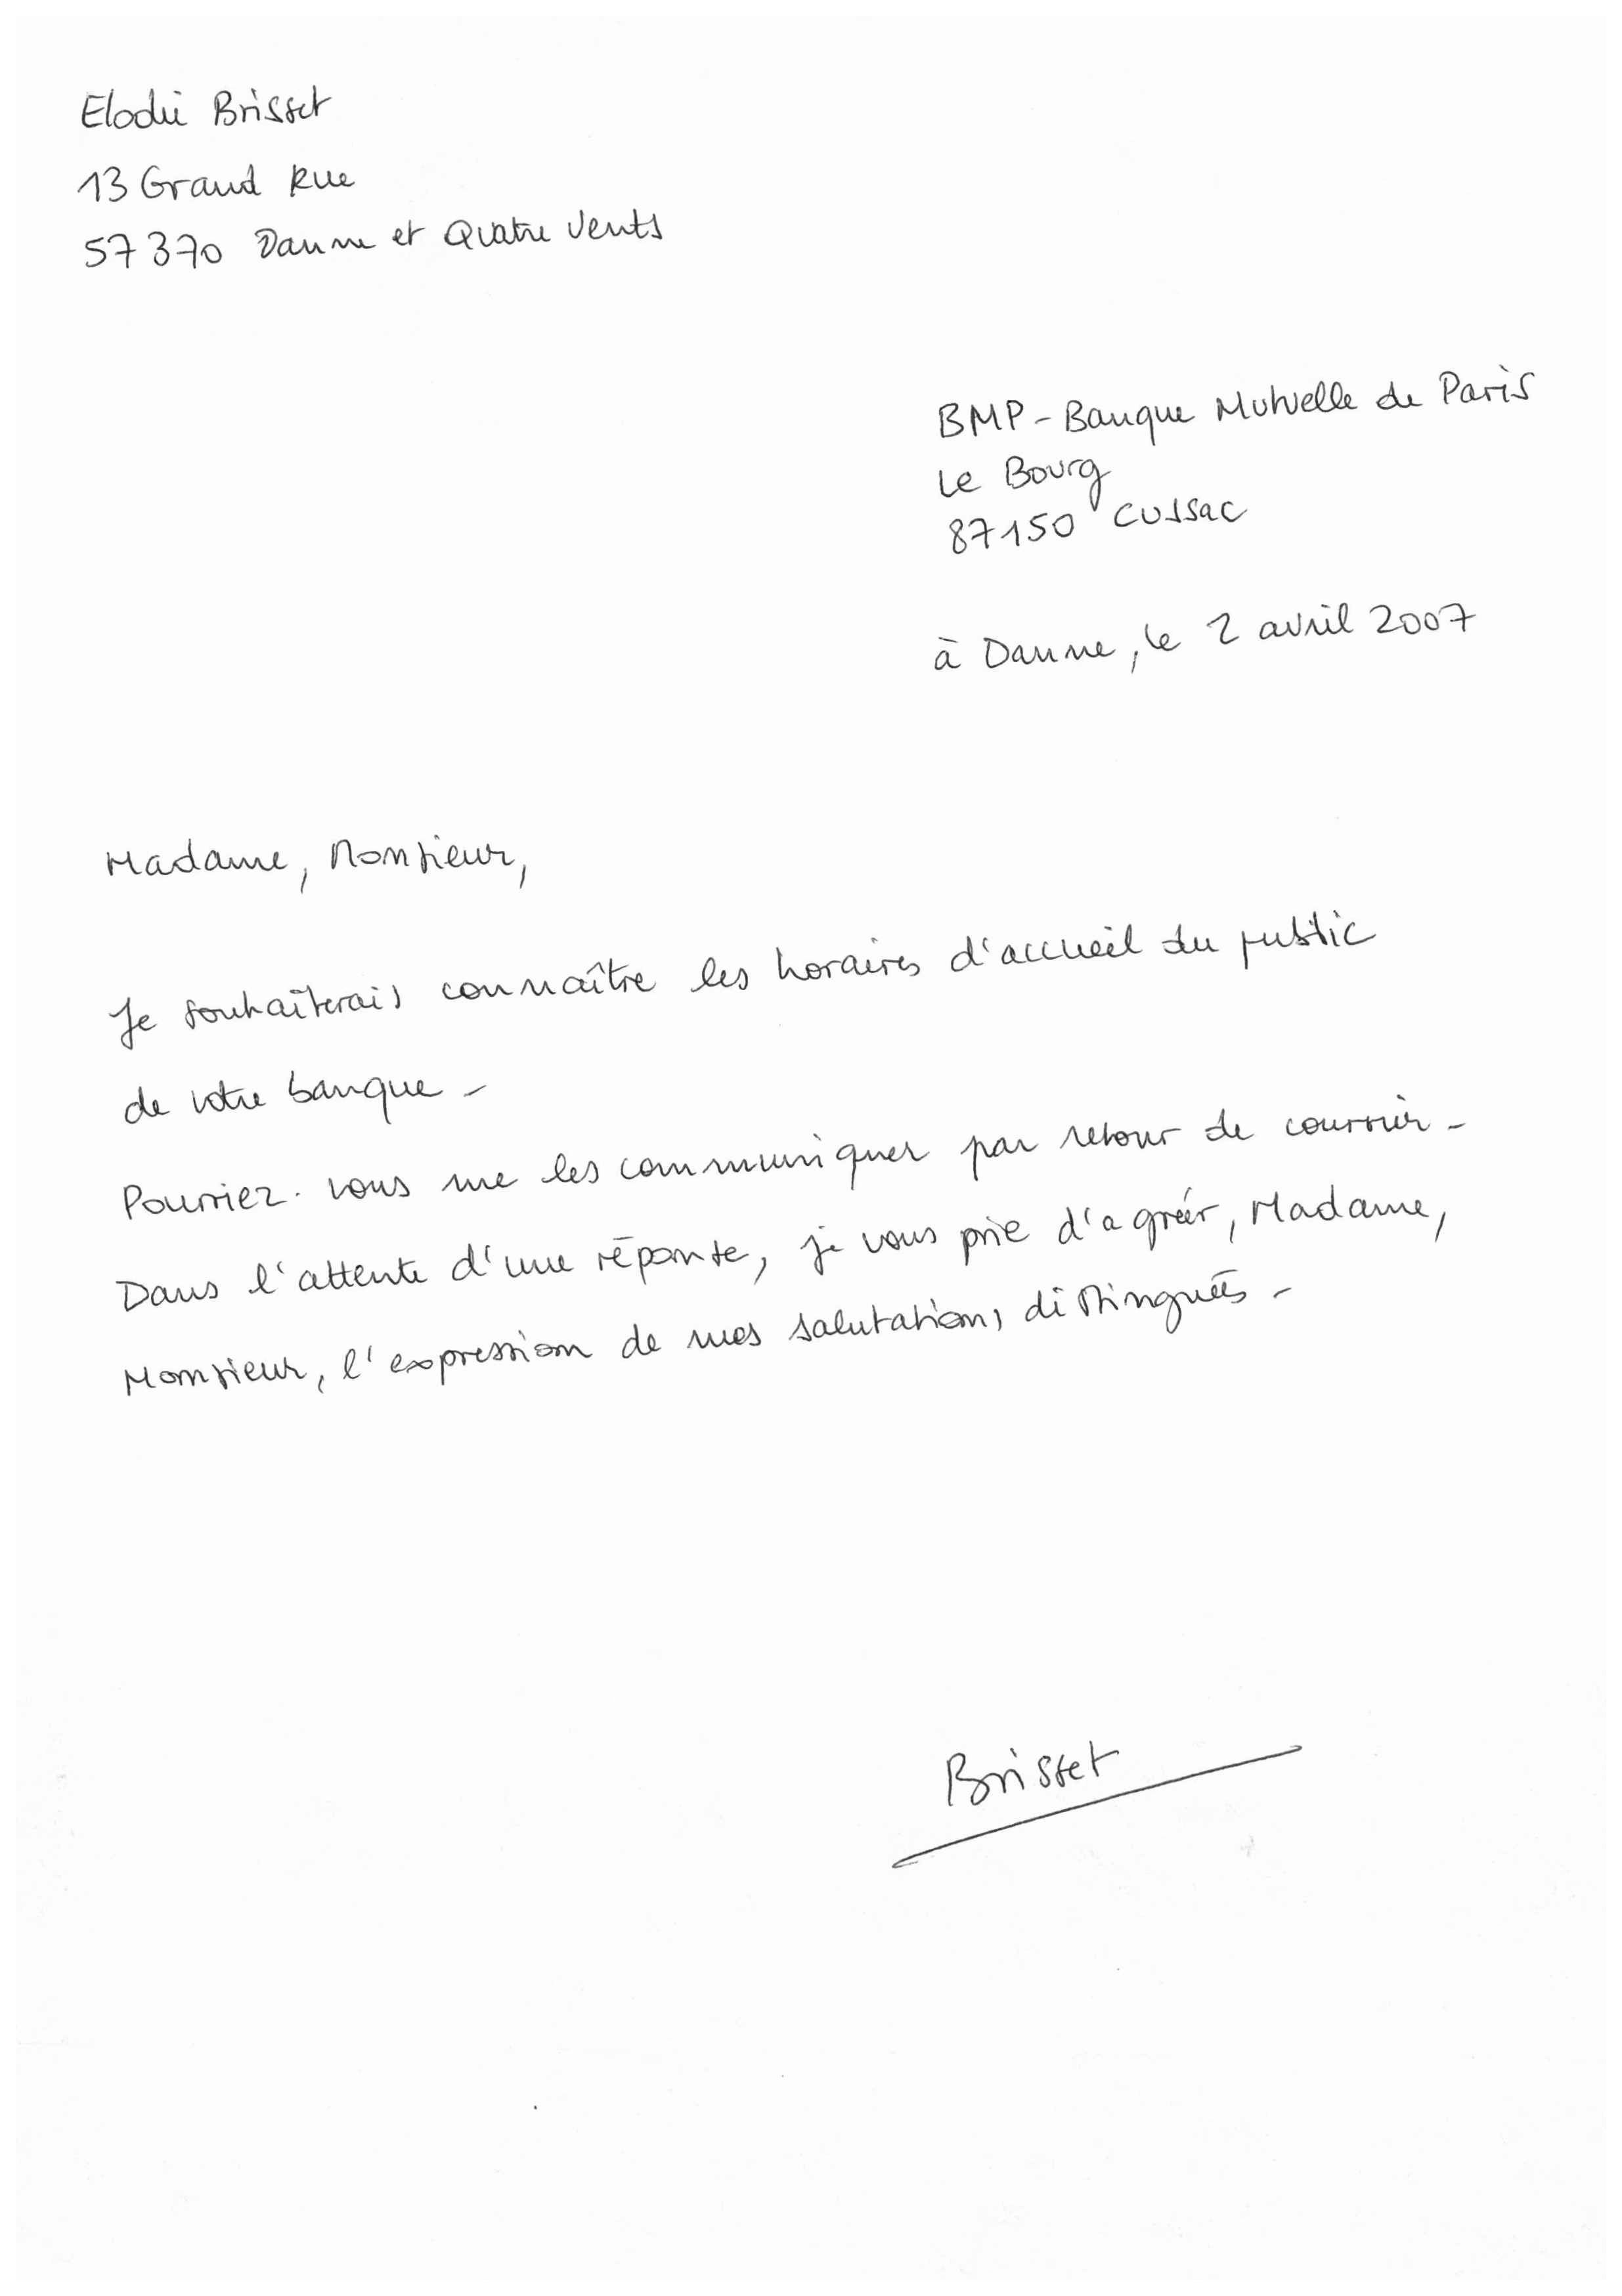 Elodie Brisset
13 Grand Rue
57370 Danne et Quatre Vents
BMP - Banque Mutuelle de Paris
Le Bourg
87150 CUSSAC
à Danne, le 2 avril 2007
Madame, Monsieur,
Je souhaîterais connaître les horaires d'accueil du public
de votre banque -
Pourriez-vous me les communiquer par retour de courrier -
Dans l'attente d'une réponse, je vous prie d'agréér, Madame,
Monsieur, l'expression de mes salutations distinguées -
Brisset